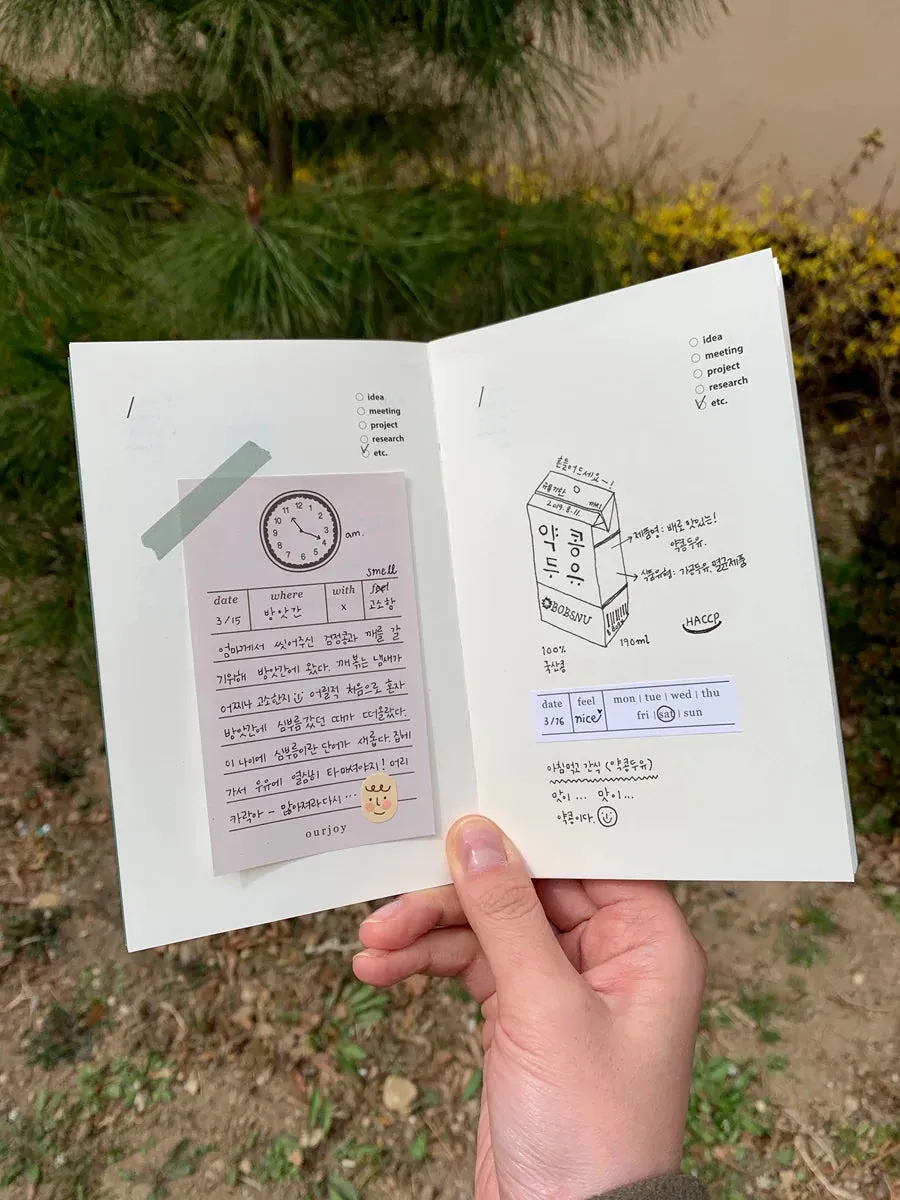 /
idea
meeting
project
research
etc.
11 12 1
10 2
9 3
8 4
7 6 5
am.
smell
date where with feel
3/15 방앗간 x 고소함
엄마께서 씻어주신 검정콩과 깨를 갈
기위해 방앗간에 왔다. 깨 볶는 냄새가
어찌나 고소한지 어릴적 처음으로 혼자
방앗간에 심부름갔던 때가 떠올랐다.
이 나이에 심부름이란 단어가 새롭다. 집에
가서 우유에 열심히 타마셔야지! 머리
카락아 - 많아져라 다시 ...
ourjoy
/
idea
meeting
project
research
etc.
흔들어드세요~!
유통기한
2019.8.11.
약콩
두유
BOBSNU
제품명: 배로 맛있는!
약콩두유.
식품유형: 가공두유.멸균제품
HACCP
190ml
100%
국산콩
date feel mon | tue | wed | thu
3/16 nice fri | sat | sun
아침먹고 간식 (약콩두유)
맛이 ... 맛이 ...
약콩이다.